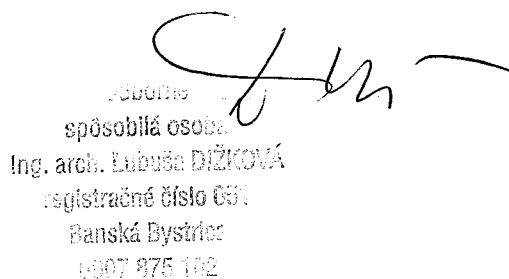 odborne
spôsobilá osoba
Ing. arch. Ľubuša DIŽKOVÁ
registračné číslo
Banská Bystrica
0907 875 102